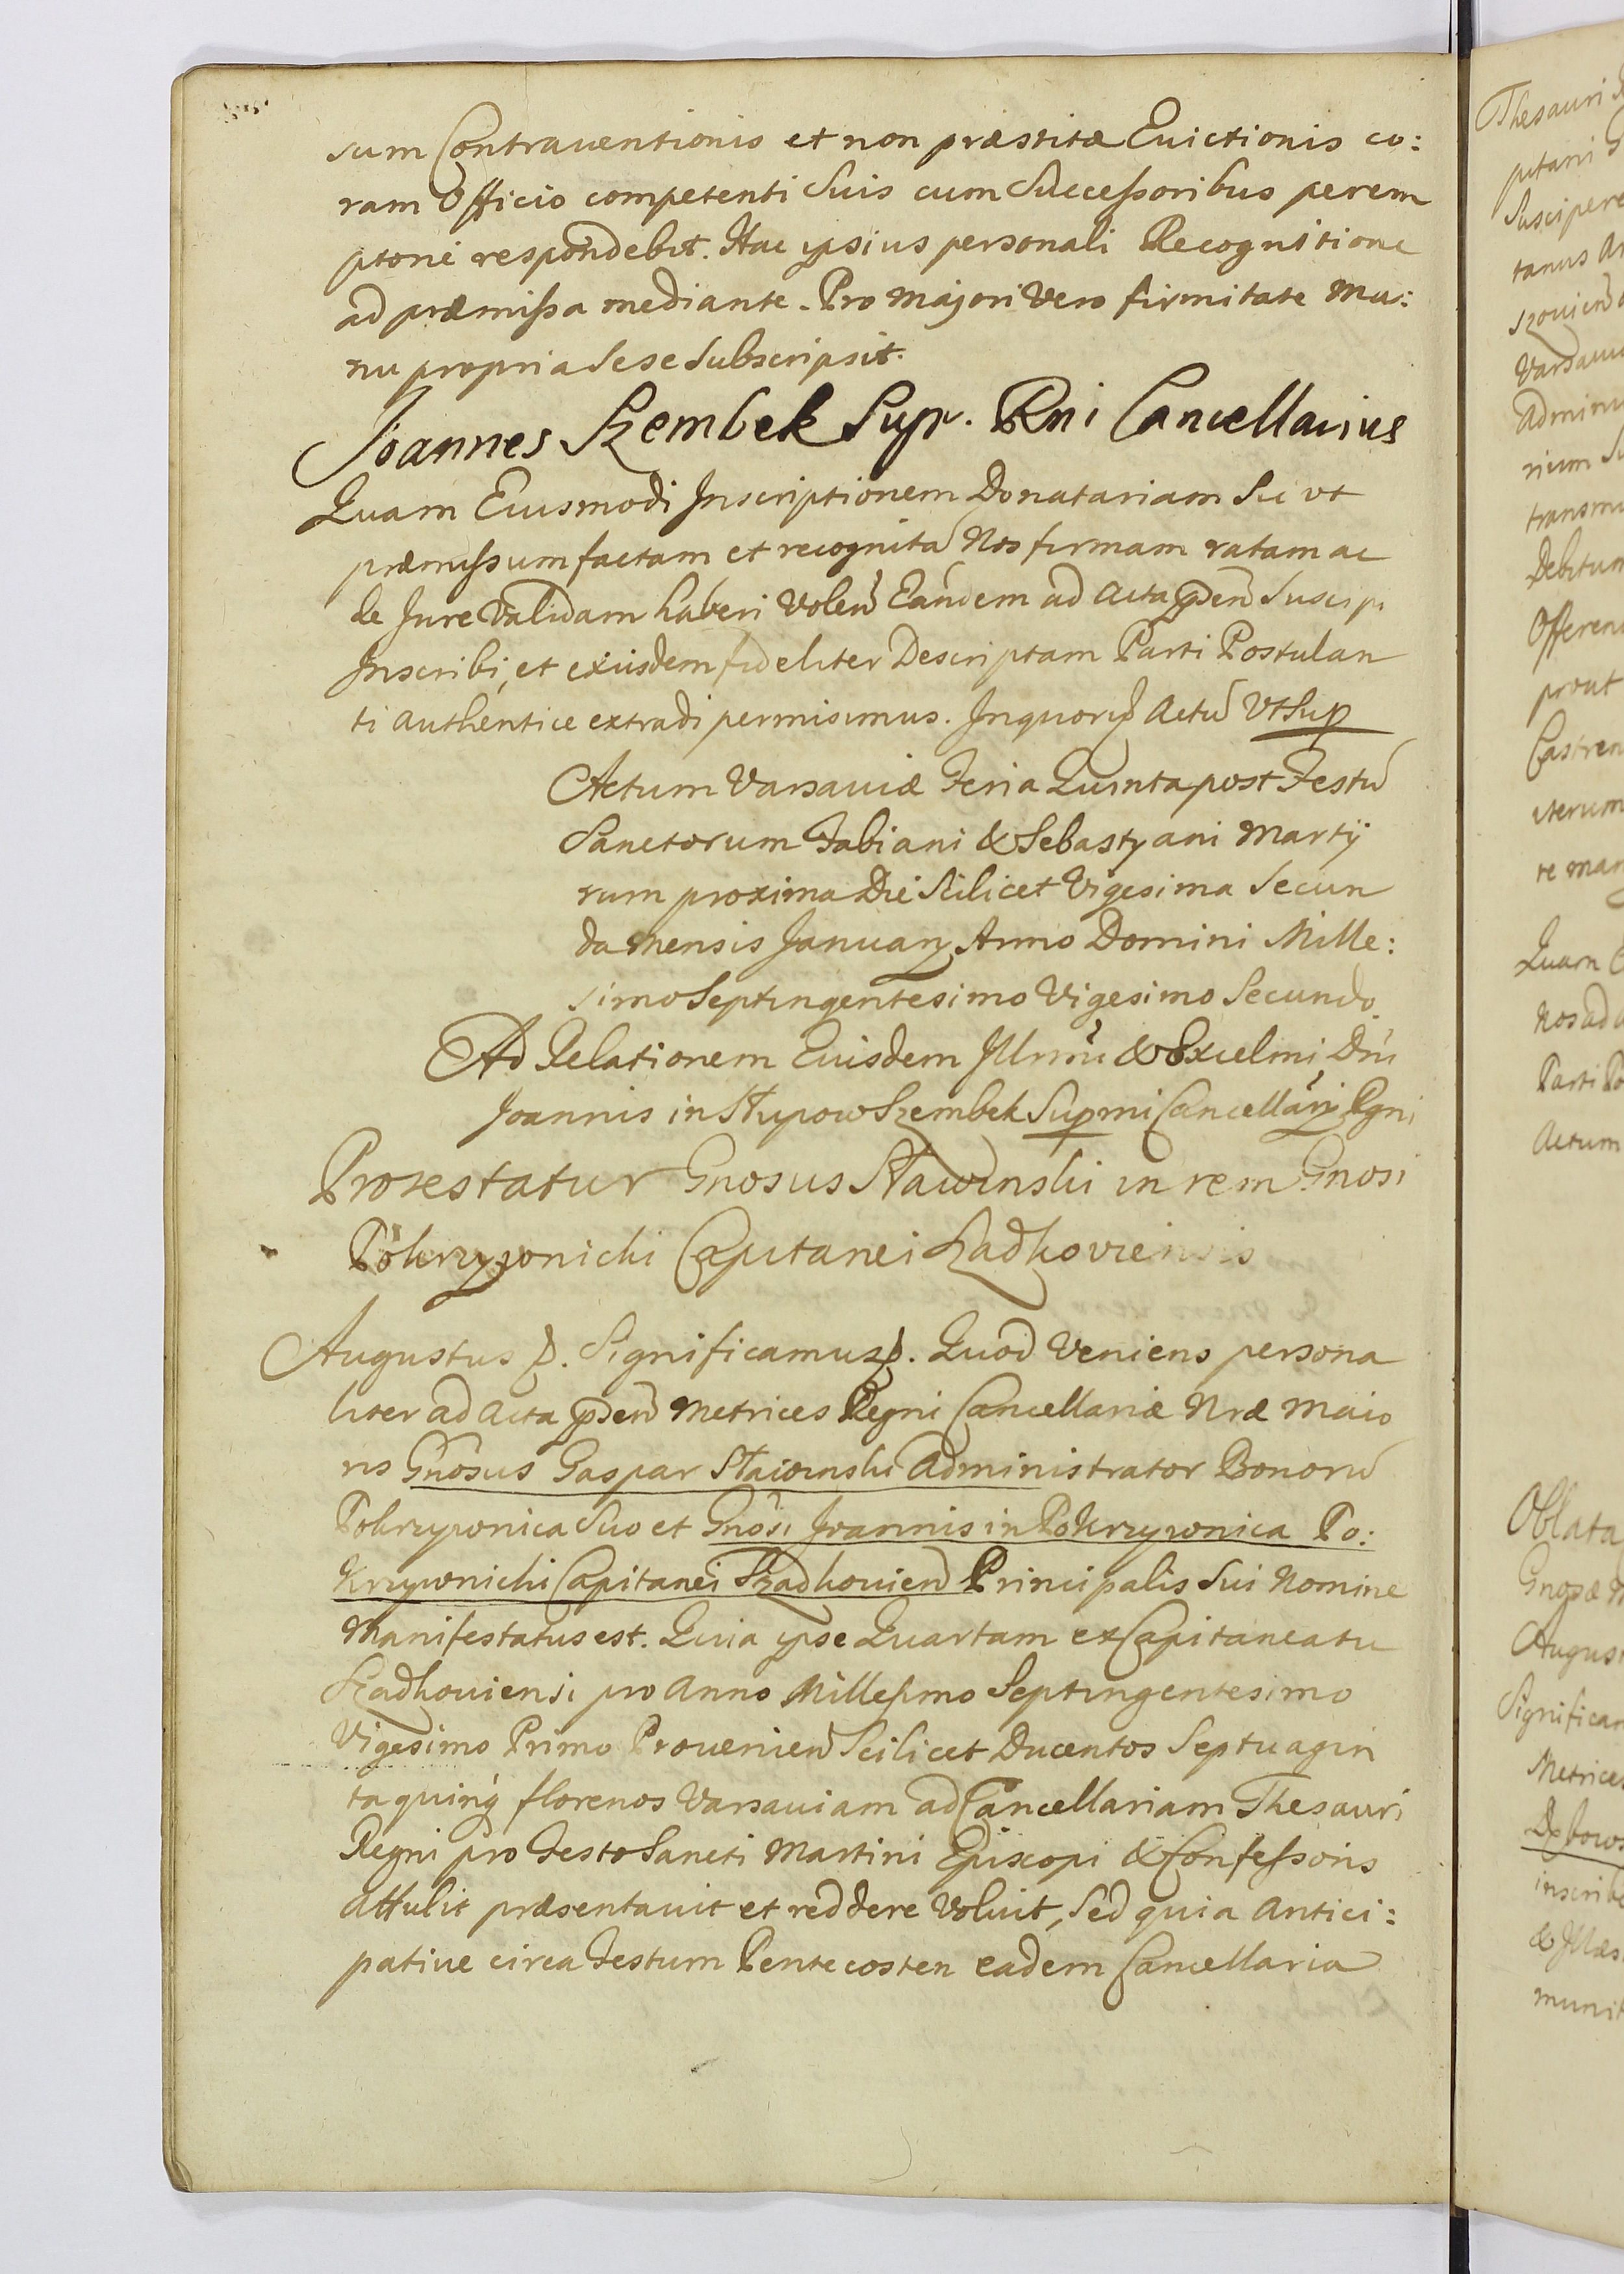 sum Contrauentionis et non præstitæ Euictionis co:
ram Officio competenti Suis cum Successoribus perem
ptorie respondebit. Hac ipsius personali Recognitione
ad præmissa mediante. Pro majori Vero firmitate Ma:
nu propria Sese Subscripsit.
Joannes Szembek Supr. Rni Cancellarius
Quam Eiusmodi Inscriptionem Donatariam Sic vt
præmissum factam et recognitã Nos firmam ratam ac
de Jure Validam haberi Volen̄ Eandem ad Acta pñ̄den̄ Suscipi
Inscribi, et exinsdem fideliter Descriptam Parti Postulan
ti authentice extradi permisimus. In quorũ Actũ Vt Sup
Actum Varsauiæ Feria Quinta post Festũ
Sanctorum Fabiani & Sebastyani Martÿ
rum proxima Die Scilicet Vigesima Secun
da mensis Januarÿ Anno Domini Mille:
simo Septingentesimo Vigesimo Secundo.
Ad Relationem Eiusdem Illrmi & Excelmi Dni
Joannis in Słupow Szembek Supmi Cancellarÿ Rgni
Protestatur Gnosus Stawinski in rem Gnosi
Pokrzywnicki Capitanei Szadkoviensis
Augustus p. Significamus p. Quod Veniens persona
liter ad Acta pñden̄ Metrices Regni Cancellariæ Nræ Maio
ris Gnosus Gaspar Stawinski Administrator Bonorũ
Pokrzywnica Suo et Gnosi Joannis in Pokrzywnica Po:
krzywnicki Capitanei Szadkouien̄ Principalis Sui Nomine
Manifestatus est. Quia ipse Quartam ex Capitaneatu
Szadkouiensi pro Anno Millesimo Septingentesimo
Vigesimo Primo Prouenien̄ Scilicet Ducentos Septuagin
ta quinq̃ florenos Varsauiam ad Cancellariam Thesauri
Regni pro Festo Sancti Martini Episcopi & Confessoris
Attulit præsentauit et reddere Voluit, Sed quia Antici:
patiue circa Festum Pentecosten eadem Cancellaria
Thesauri
pitanei
Suscipere
tanus
Adminis
ricum
transmi
Debitum
Offeren
prout
Castren
iterum
re man
Quam
Nos ad
Parti Po
Actum
Oblata
Gnosæ
August
Significam
Metrices
inscribe
munit